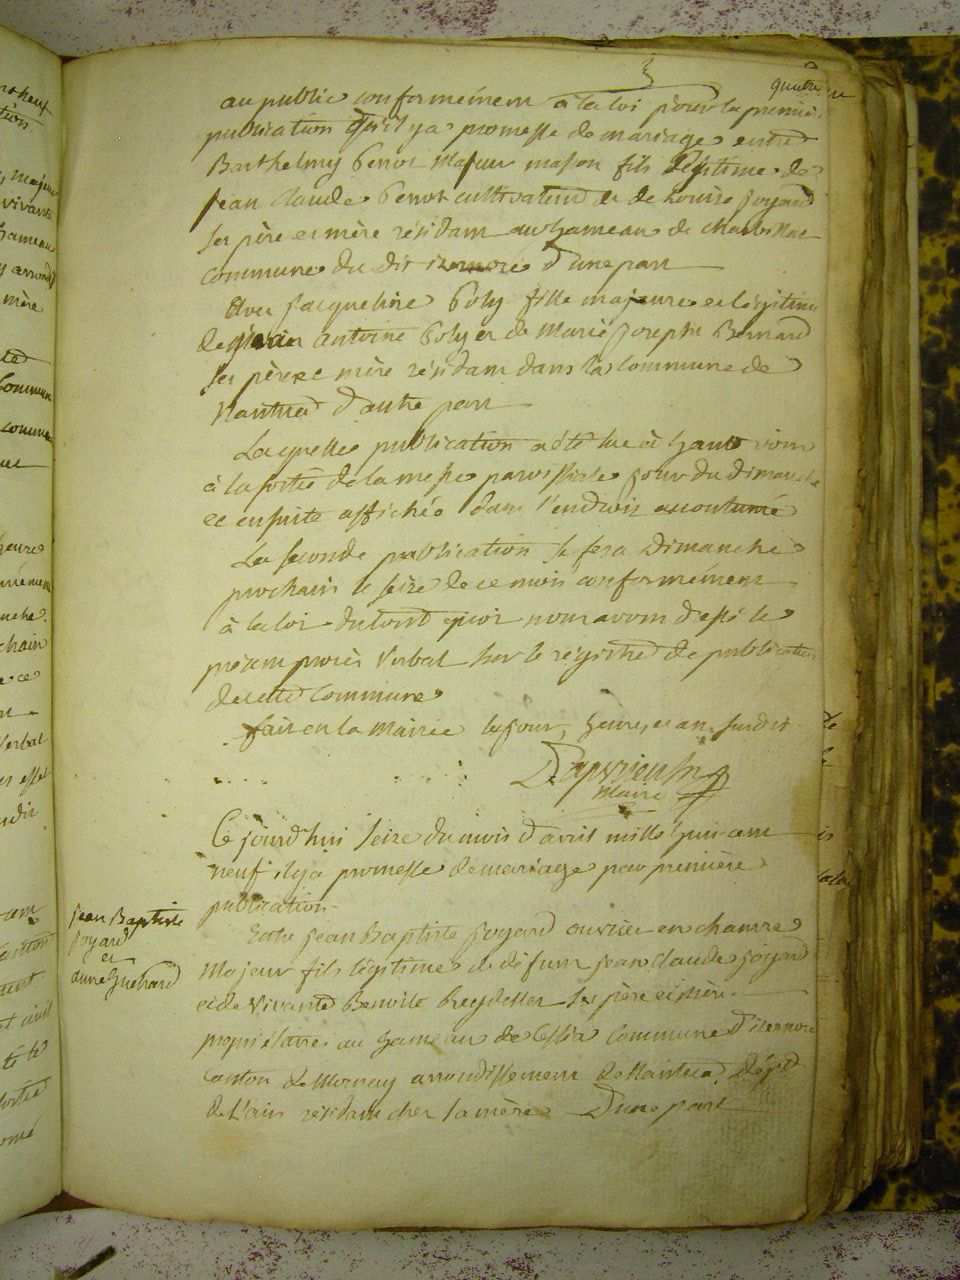 quatre
au public conformément à la loi pour la première
publication qu'il y a promesse de mariage entre
Barthelmy Genot Majeur masson fils légitime de
jean Claude Genot cultivateur et de Louise joyard
ses père et mère résidam au hameau de charbillac
commune du dit izernore d'une part
Avec jacqueline Poly fille majeure et légitime
de antoine Poly et de Marie joseph Bernard
ses père et mère résidam dans la commune de
Nantua d'autre part
Laquelle publication a été lue à haute voix
à la sortie de la messe paroissiale jour du dimanche
et ensuite affichée dans l'endroit accoutumé
La seconde publication se fera Dimanche
prochain le seize de ce mois conformément
à la loi du tout quoi nous avons dressé le
présent procès verbal sur le régistre de publication
de cette commune
fait en la Mairie les jour, heure, et an susdit
Maire
Ce jourd'hui seize du mois d'avril mille huit cent
neuf il y a promesse de mariage pour première
publication
jean Baptiste
joyard
et
anne
Entre jean Baptiste joyard ouvrier en chanvre
Majeur fils légitime de défunt jean claude joyard
et de vivante Benoite Reydellet ses père et mère
propriétaires au hameau de Cessia commune d'izernore
Canton de Mornay arrondissement de Nantua, dépt
de L'ain résidam chez sa mère D'une part